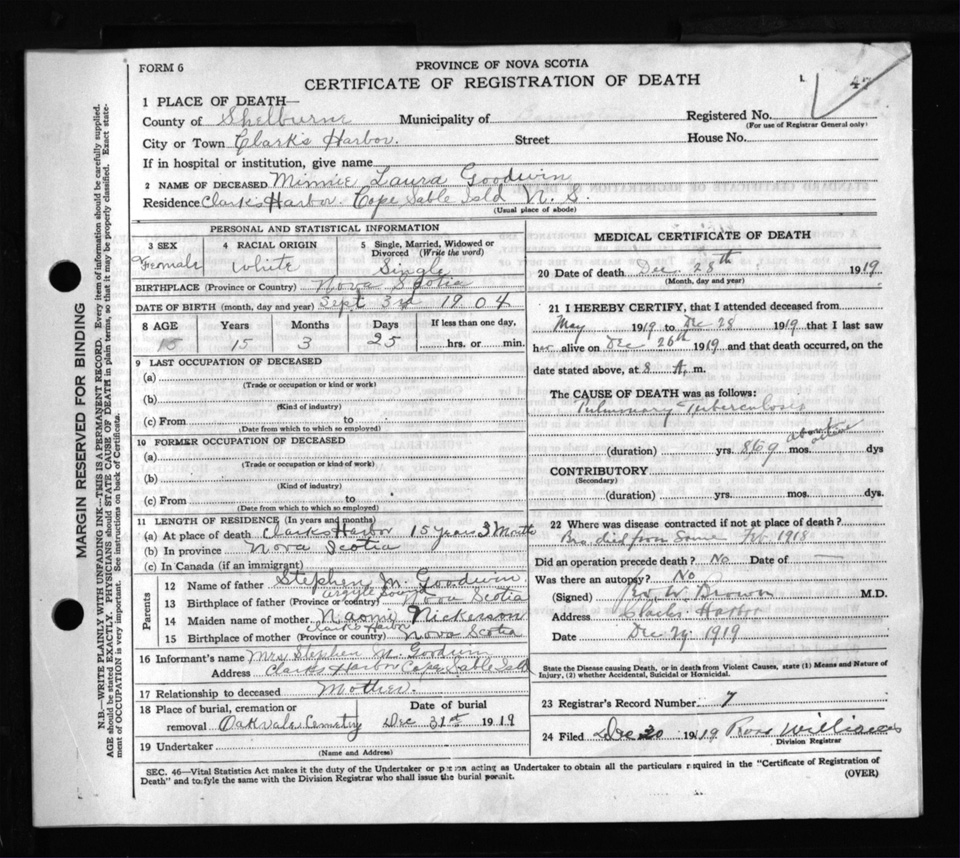 FORM 6
PROVINCE OF NOVA SCOTIA
CERTIFICATE OF REGISTRATION OF DEATH
1 PLACE OF DEATH—
County of Shelburne Municipality of Registered No.
(For use of Registrar General only)
City or Town Clark's Harbor. Street House No.
If in hospital or institution, give name
2 NAME OF DECEASED Minnie Laura Goodwin
Residence Clark's Harbor. Cape Sable Isld N. S.
(Usual place of abode)
PERSONAL AND STATISTICAL INFORMATION
3 SEX 4 RACIAL ORIGIN 5 Single, Married, Widowed or Divorced (Write the word)
Female White Single
BIRTHPLACE (Province or Country) Nova Scotia
DATE OF BIRTH (month, day and year) Sept 3rd 1904
8 AGE Years Months Days If less than one day,
15 15 3 25 hrs. or min.
9 LAST OCCUPATION OF DECEASED
(a)
(Trade or occupation or kind or work)
(b)
(Kind of industry)
(c) From to
(Date from which to which so employed)
10 FORMER OCCUPATION OF DECEASED
(a)
(Trade or occupation or kind of work)
(b)
(Kind of industry)
(c) From to
(Date from which to which so employed)
11 LENGTH OF RESIDENCE (In years and months)
(a) At place of death Clark's Harbor 15 years 3 Months
(b) In province Nova Scotia
(c) In Canada (if an immigrant)
Parents
12 Name of father Stephen M. Goodwin
13 Birthplace of father (Province or country) Argyle Sound Nova Scotia
14 Maiden name of mother Naomi Nickerson
15 Birthplace of mother (Province or country) Clarks Harbor Nova Scotia
16 Informant's name Mrs Stephen M. Goodwin
Address Clark's Harbor Cape Sable Isld
17 Relationship to deceased Mother.
18 Place of burial, cremation or removal Oakvale Cemetry Date of burial Dec 31st 1919
19 Undertaker
(Name and Address)
MEDICAL CERTIFICATE OF DEATH
20 Date of death Dec 28th 1919
(Month, day and year)
21 I HEREBY CERTIFY, that I attended deceased from
May 1919 to Dec 28 1919 that I last saw
her alive on Dec 26th 1919 and that death occurred, on the
date stated above, at 8 A. m.
The CAUSE OF DEATH was as follows:
Pulmonary Tuberculosis
(duration) yrs. 8 to 9 mos. about active dys
CONTRIBUTORY
(Secondary)
(duration) yrs. mos. dys.
22 Where was disease contracted if not at place of death?
Bro. died from same Feb 1918
Did an operation precede death? No Date of —
Was there an autopsy? No
(Signed) W. Brown M.D.
Address Clarks Harbor
Date Dec 29 1919
State the Disease causing Death, or in death from Violent Causes, state (1) Means and Nature of Injury, (2) whether Accidental, Suicidal or Homicidal.
23 Registrar's Record Number 7
24 Filed Dec 30 1919 Ross
Division Registrar
SEC. 46—Vital Statistics Act makes it the duty of the Undertaker or person acting as Undertaker to obtain all the particulars required in the "Certificate of Registration of
Death" and to fyle the same with the Division Registrar who shall issue the burial permit.
(OVER)
MARGIN RESERVED FOR BINDING
N.B.—WRITE PLAINLY WITH UNFADING INK—THIS IS A PERMANENT RECORD. Every item of information should be carefully supplied.
AGE should be stated EXACTLY. PHYSICIANS should STATE CAUSE OF DEATH in plain terms, so that it may be properly classified. Exact statement of OCCUPATION is very important. See instructions on back of Certificate.